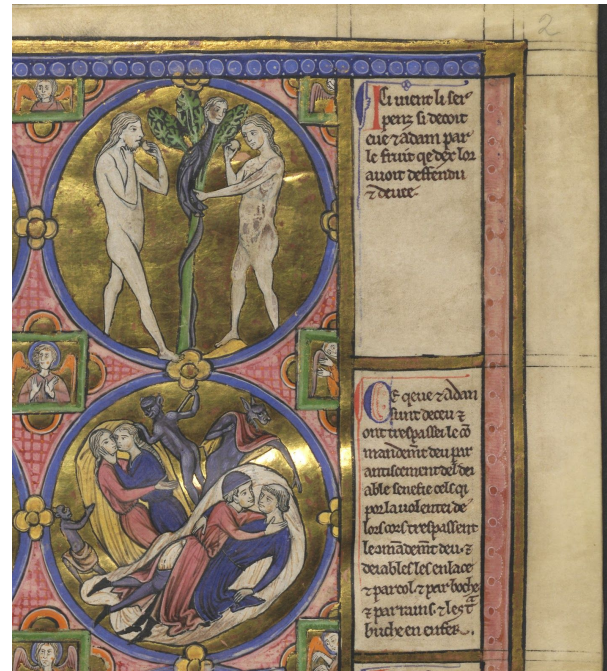 2
Ici uient li ser
penz si decoit
eue ⁊ adam par
le fruit qe dex lor
auoit deffendu
⁊ deuee.
Ce qe eue ⁊ adam
furent deceu ⁊
ont trespasse le cō
mandemt deu par
anticement del dei
able senefie cels qi
por la uolente de
lor cors trespassent
le cōmādemt deu. ⁊
deiables les enlace
⁊ par col ⁊ par boche
⁊ par rains ⁊ les t
buche en enfer.